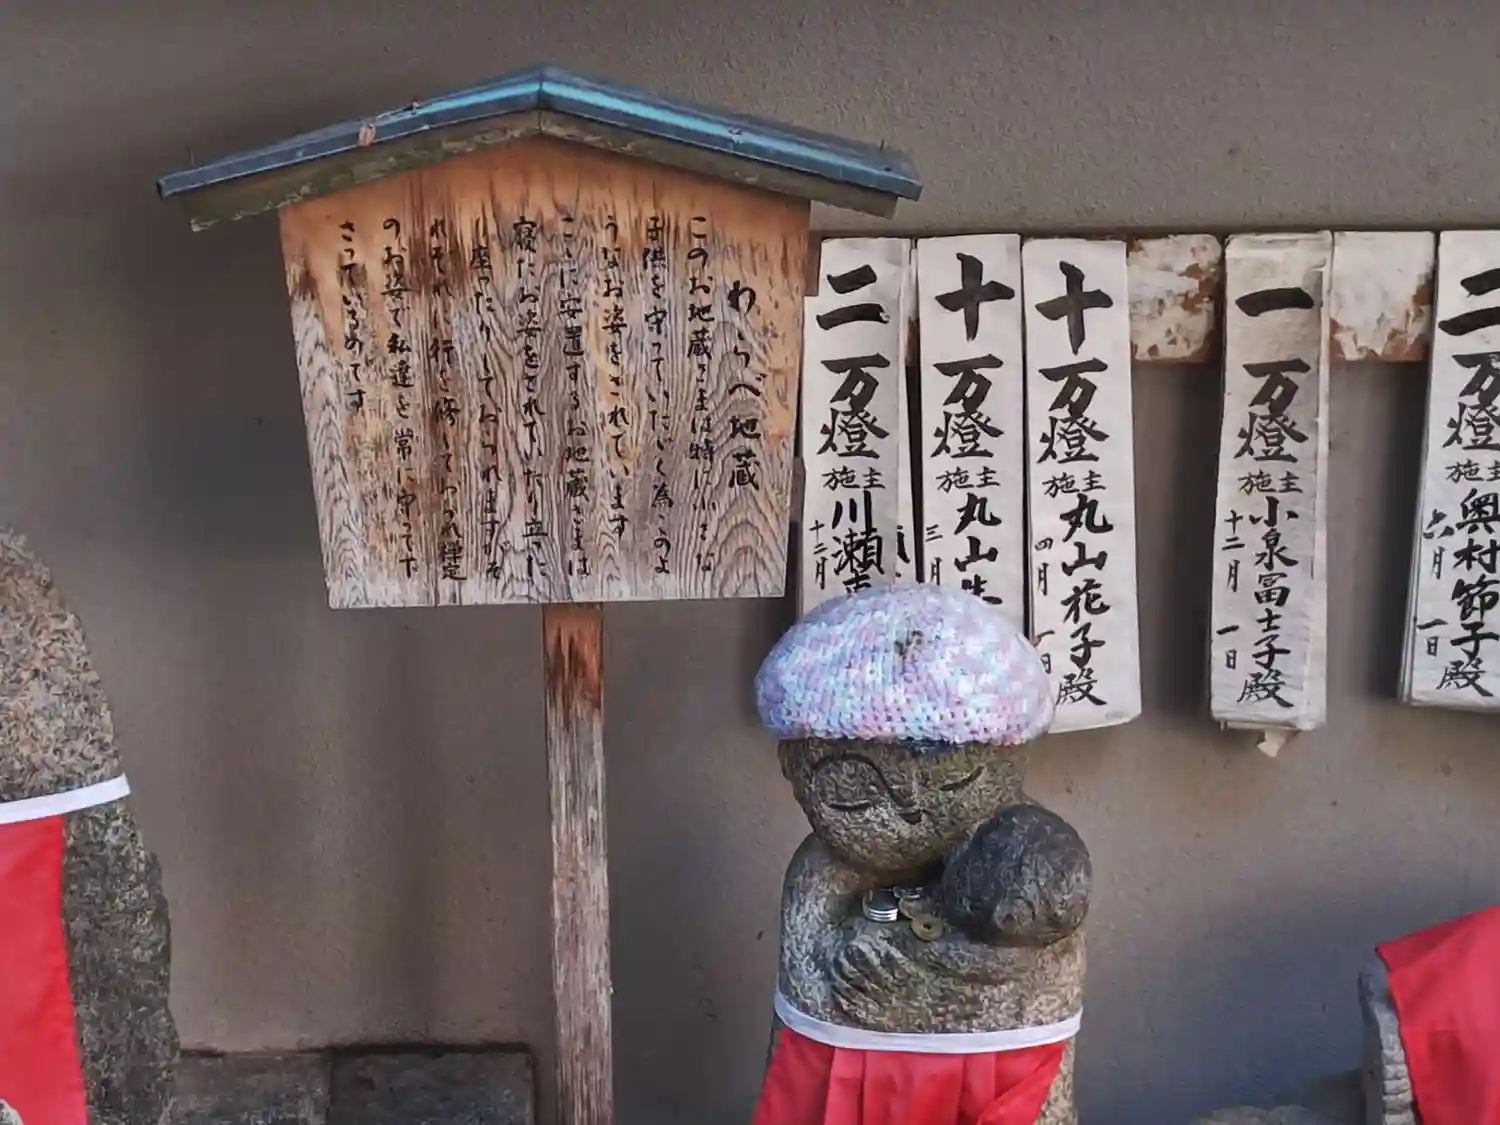 わらべ地蔵
このお地蔵さまは特に小さな
子供を守っていたゞく為このよ
うなお姿をされています
ここに安置するお地蔵さまは
寝たお姿をされていたり立った
り座ったりしておられますがそ
れぞれに行を修しておられ禅定
のお姿で私達を常に守って下
さっているのです
二万燈
施主
川瀬
十二月
十万燈
施主
丸山
三月
十万燈
施主
丸山花子殿
四月
日
一万燈
施主
小泉冨士子殿
十二月一日
二万燈
施主
奥村節子殿
六月一日